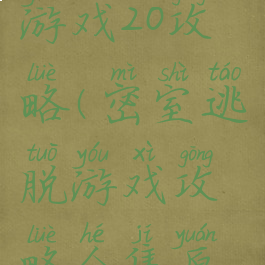 游戏20攻
lüè mì shì táo
略(密室逃
tuō yóu xì gōng
脱游戏攻
lüè hé jí yuán
略合集原